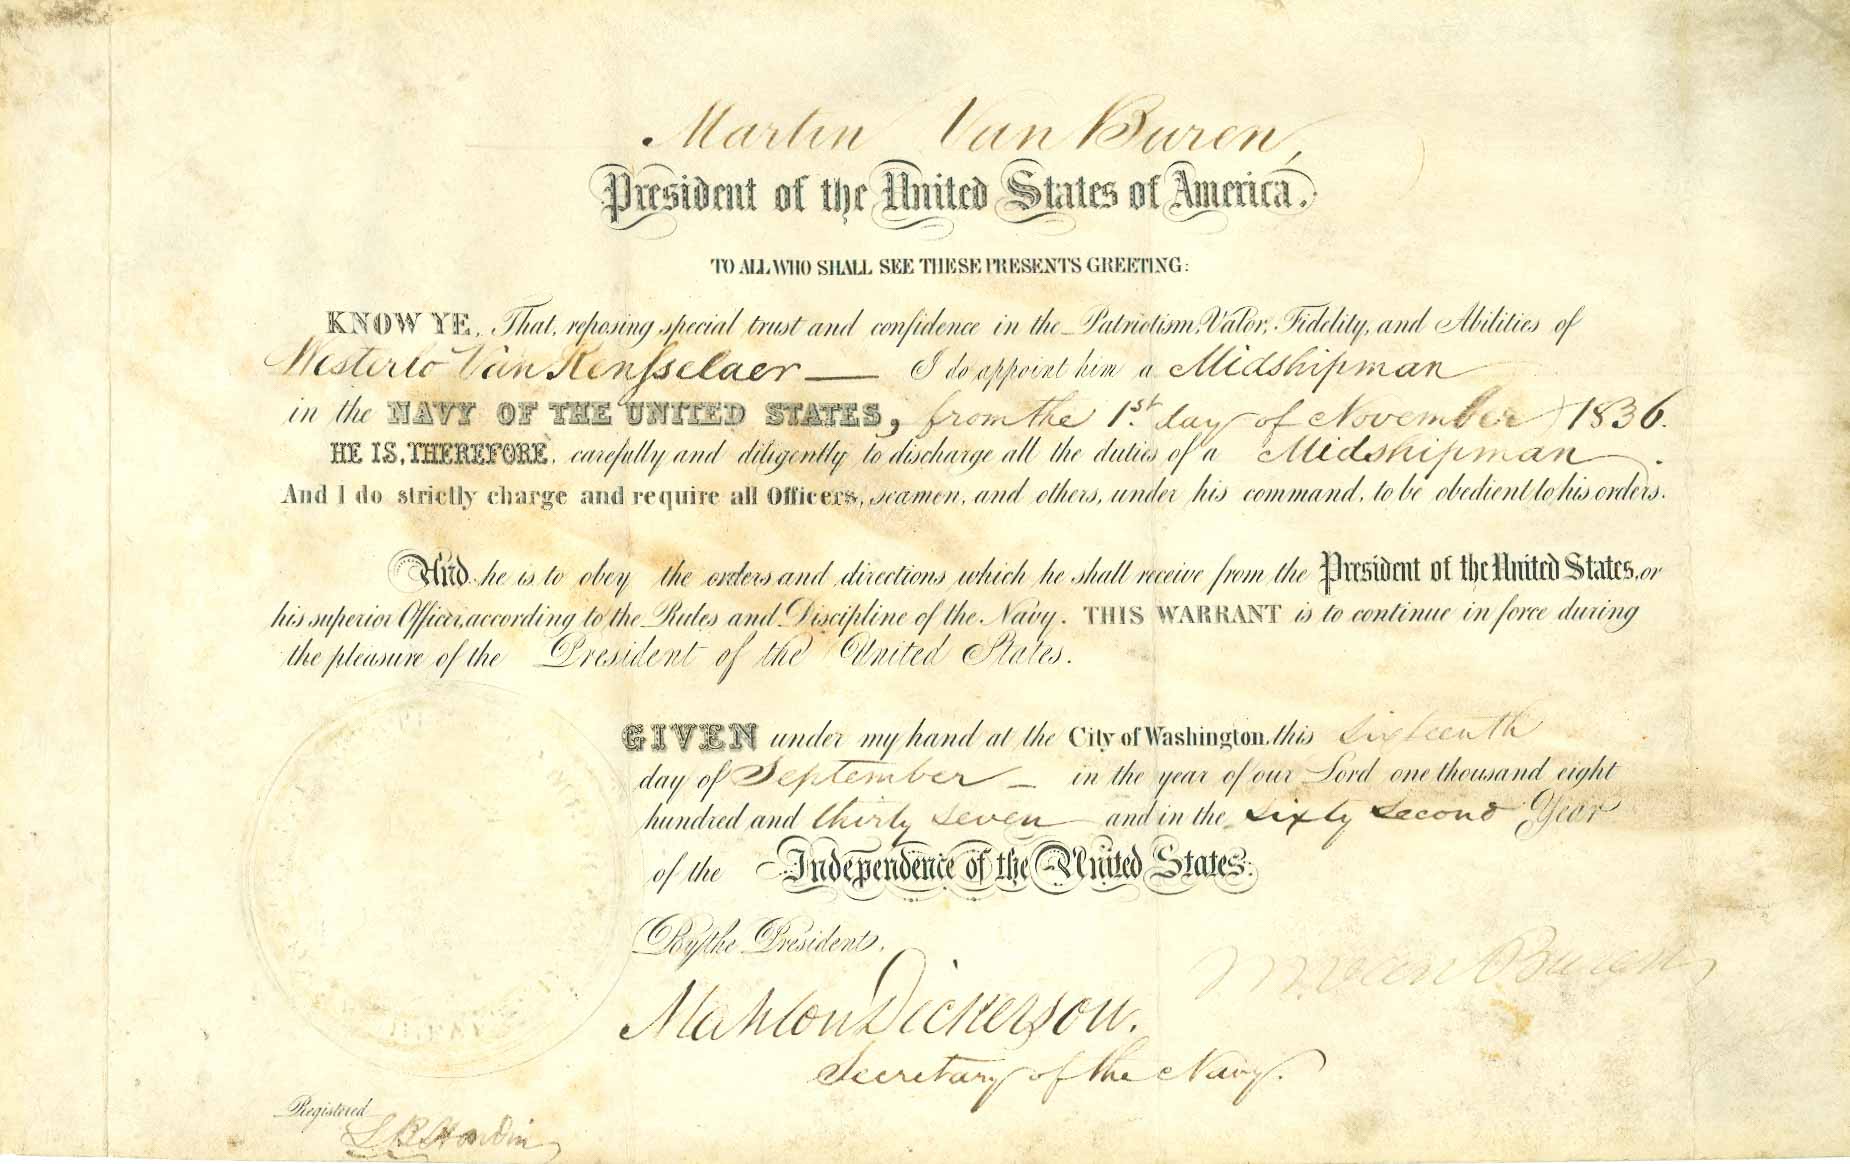 Martin Van Buren,
President of the United States of America.
TO ALL WHO SHALL SEE THESE PRESENTS GREETING:
KNOW YE, That, reposing special trust and confidence in the Patriotism, Valor, Fidelity, and Abilities of
Westerlo Van Rensselaer — I do appoint him a Midshipman
in the NAVY OF THE UNITED STATES, from the 1st. day of November 1836.
HE IS, THEREFORE, carefully and diligently to discharge all the duties of a Midshipman.
And I do strictly charge and require all Officers, seamen, and others, under his command, to be obedient to his orders.
And he is to obey the orders and directions which he shall receive from the President of the United States, or
his superior Officer, according to the Rules and Discipline of the Navy. THIS WARRANT is to continue in force during
the pleasure of the President of the United States.
GIVEN under my hand at the City of Washington, this sixteenth
day of September — in the year of our Lord one thousand eight
hundred and thirty seven and in the sixty second Year
of the Independence of the United States.
By the President.
M. Van Buren
Mahlon Dickerson.
Secretary of the Navy.
Registered